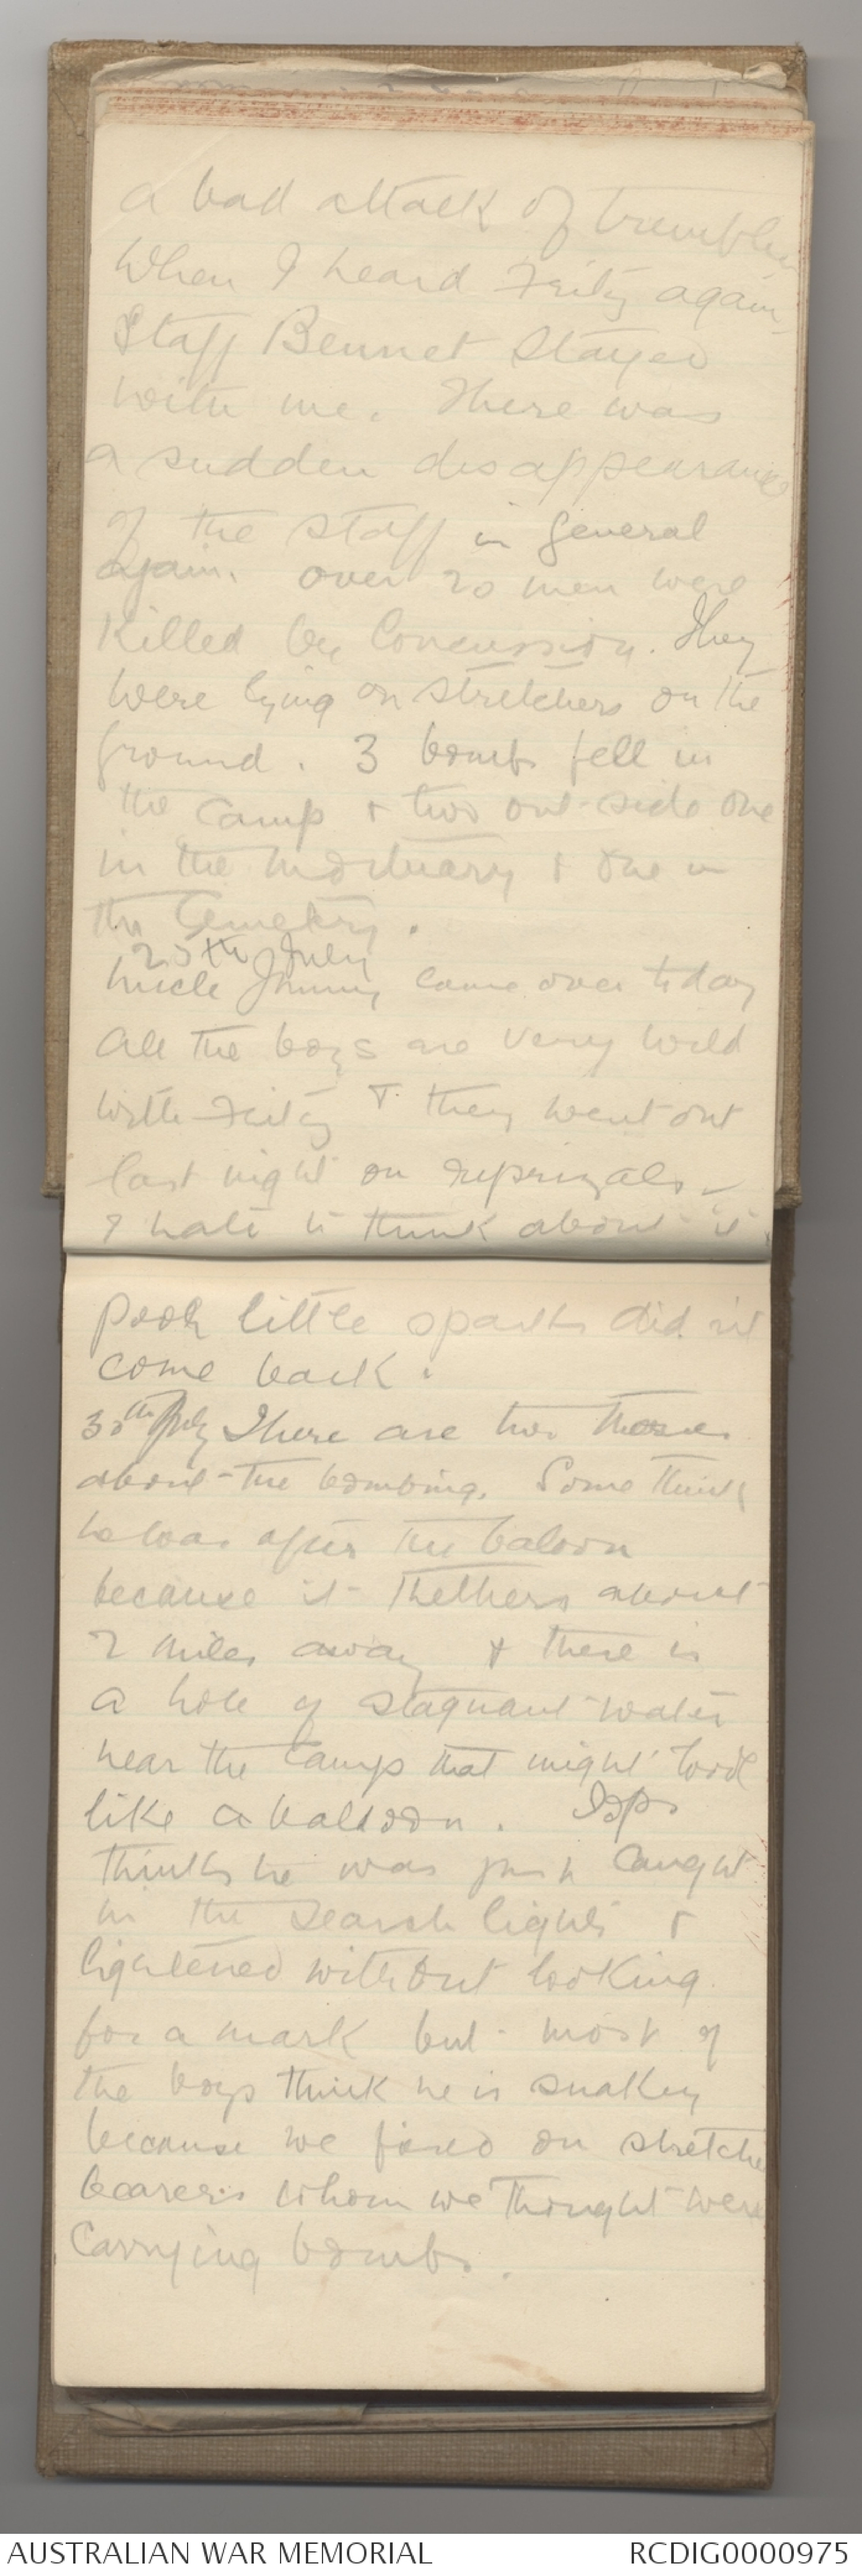 a bad attack of trembles
When I heard Fritz again.
Staff Bennet stayed
with me. There was
a sudden disappearance
of the staff in general
again. over 20 men were
killed by Concussion. They
were lying on stretchers on the
ground. 3 bombs fell in
the camp & two out-side one
in the mortuary & one in
the Cemetery.
25th July
Uncle Jimmy came over today
all the boys are very wild
with Fritz & they went out
last night on reprizals.
I hate to think about it
Poor little sparks did nt
come back.
30th July There are two
about the bombing. Some think
he was after the baloon
because it thethers about
2 miles away & there is
a hole of stagnant water
near the camp that might look
like a balloon.
thinks he was just caught
in the search lights &
lightened without looking
for a mark but most of
the boys think he is snakey
because we fired on stretche
bearers whom we thought were
Carrying bombs.
AUSTRALIAN WAR MEMORIAL
RCDIG0000975